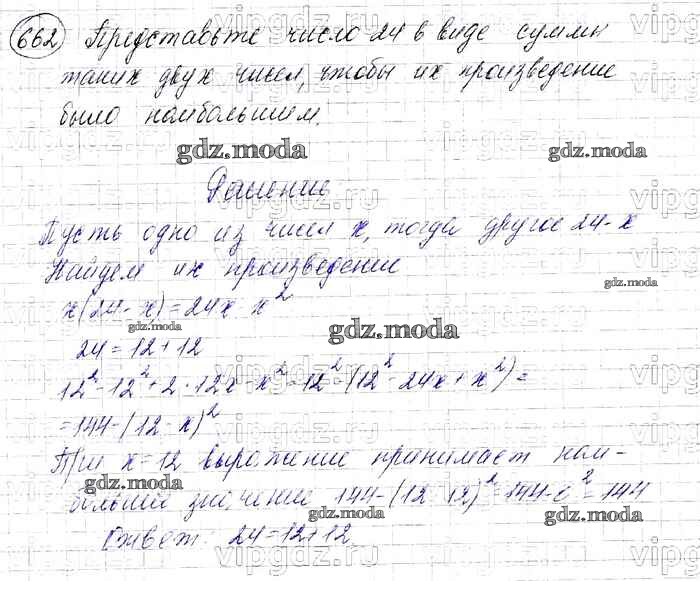 662 Представьте число 24 в виде суммы
таких двух чисел, чтобы их произведение
было наибольшим.
gdz.moda
gdz.moda
Решение
Пусть одно из чисел x, тогда другое 24-x
Найдем их произведение
gdz.moda
x(24-x)=24x x²
gdz.moda
gdz.moda
24=12+12
12²-12²+2·12x-x²=12²-(12²-24x+x²)=
=144-(12 x)²
При x=12 выражение принимает наи-
gdz.moda
больший значение 144-(12 12)²=144-0²=144
gdz.moda
gdz.moda
Ответ: 24=12+12.
vipgdz.ru